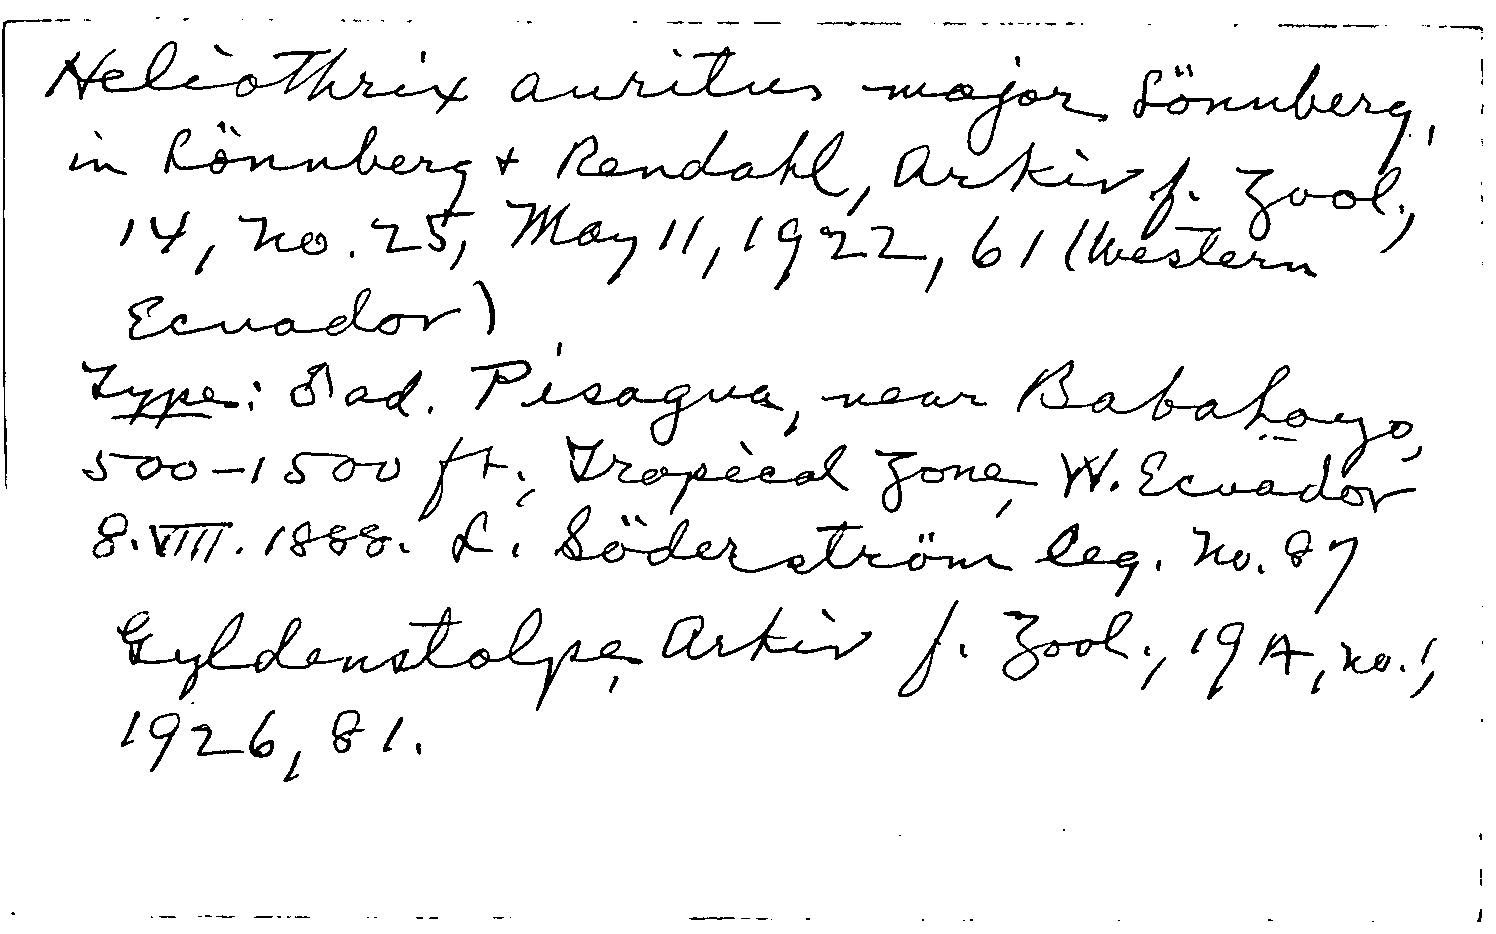 Heliothrix auritus major Lönnberg,
in Lönnberg + Rendahl, Arkiv f. Zool.,
14, no. 25, May 11, 1922, 61 (Western
Ecuador)
Type: ♂ ad. Pisagua, near Babahoyo,
500-1500 ft., Tropical Zone, W. Ecuador
8.VIII.1888. L. Söderström leg. No. 87
Gyldenstolpe, Arkiv f. Zool., 19A, no. 1,
1926, 81.